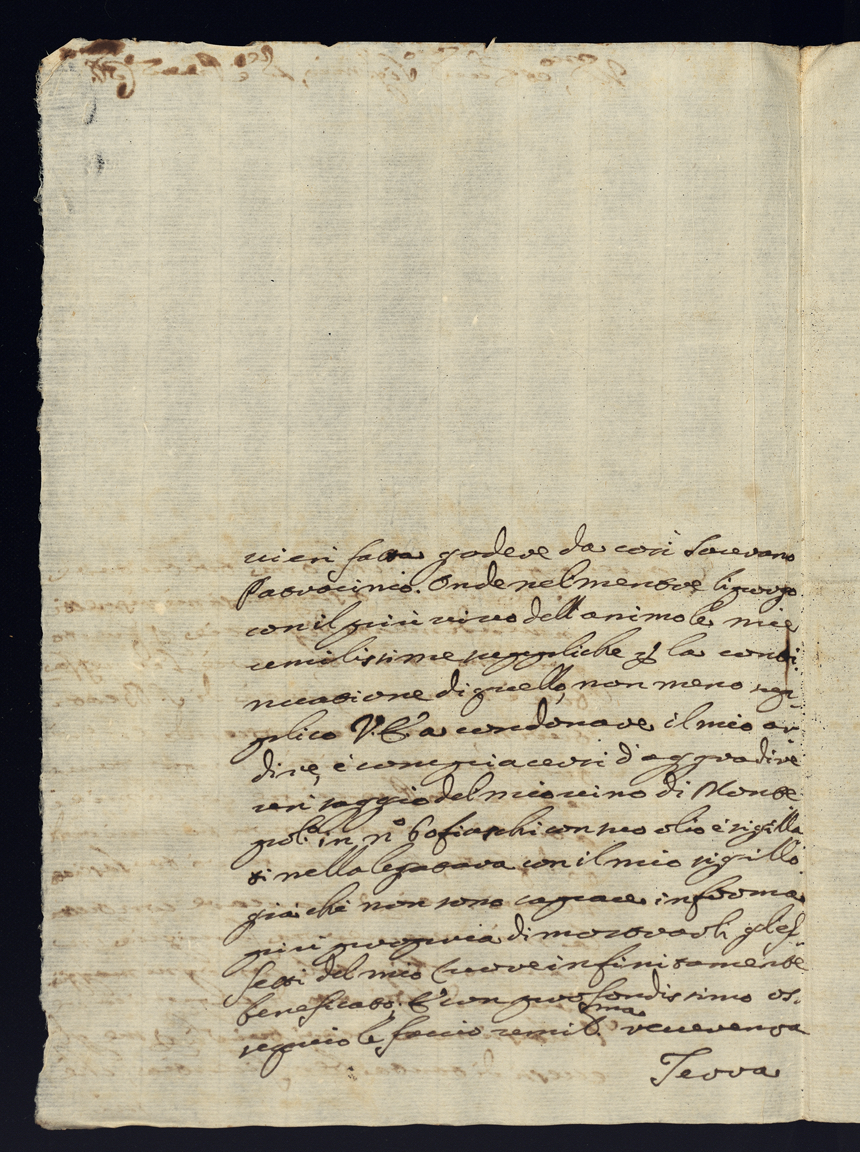 vieri fatta godere da così Sovrano
Patrocinio. Onde nel mentre li porgo
con il più vivo dell'animo le mie
umilissime suppliche p la conti
nuatione di quello, non meno sup
plico V. E. a condonare il mio ar
dire, è compiacersi d'aggradire
un saggio del mio vino di Monte
pol.º in nº 60 fiaschi con suo olio è sigilla
ti nella legatura con il mio sigillo
già che non sono capace in forma
più propria di mostrarli gl'ef
fetti del mio Cuore infinitamente
beneficato, E con profondissimo os
sequio le faccio umil.ma reverenza
Terra